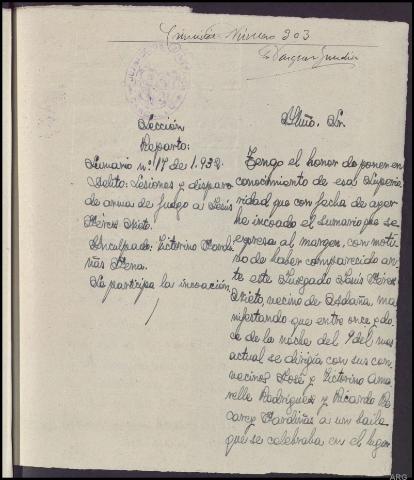 Sumario Número 203
Sección
Reparto:
Sumario nº. 17 de 1.932.
Delito: Lesiones y disparo
de arma de fuego a Luis
Pérez Nieto.
Inculpado: Victorino Pardi
ñas Pena.
Se participa la incoación.
Iltmo. Sr.
Tengo el honor de poner en
conocimiento de esa Superio
ridad que con fecha de ayer
he incoado el sumario que se
expresa al margen, con moti
vo de haber comparecido an
te este Juzgado Luis Pérez
Nieto, vecino de ma
nifestando que entre once y do
ce de la noche del 9 del mes
actual se dirigía con sus con
vecinos José y Victorino Ama
relle Rodríguez y Ricardo
Pardiñas a un baile
que se celebraba en el lugar
ARG